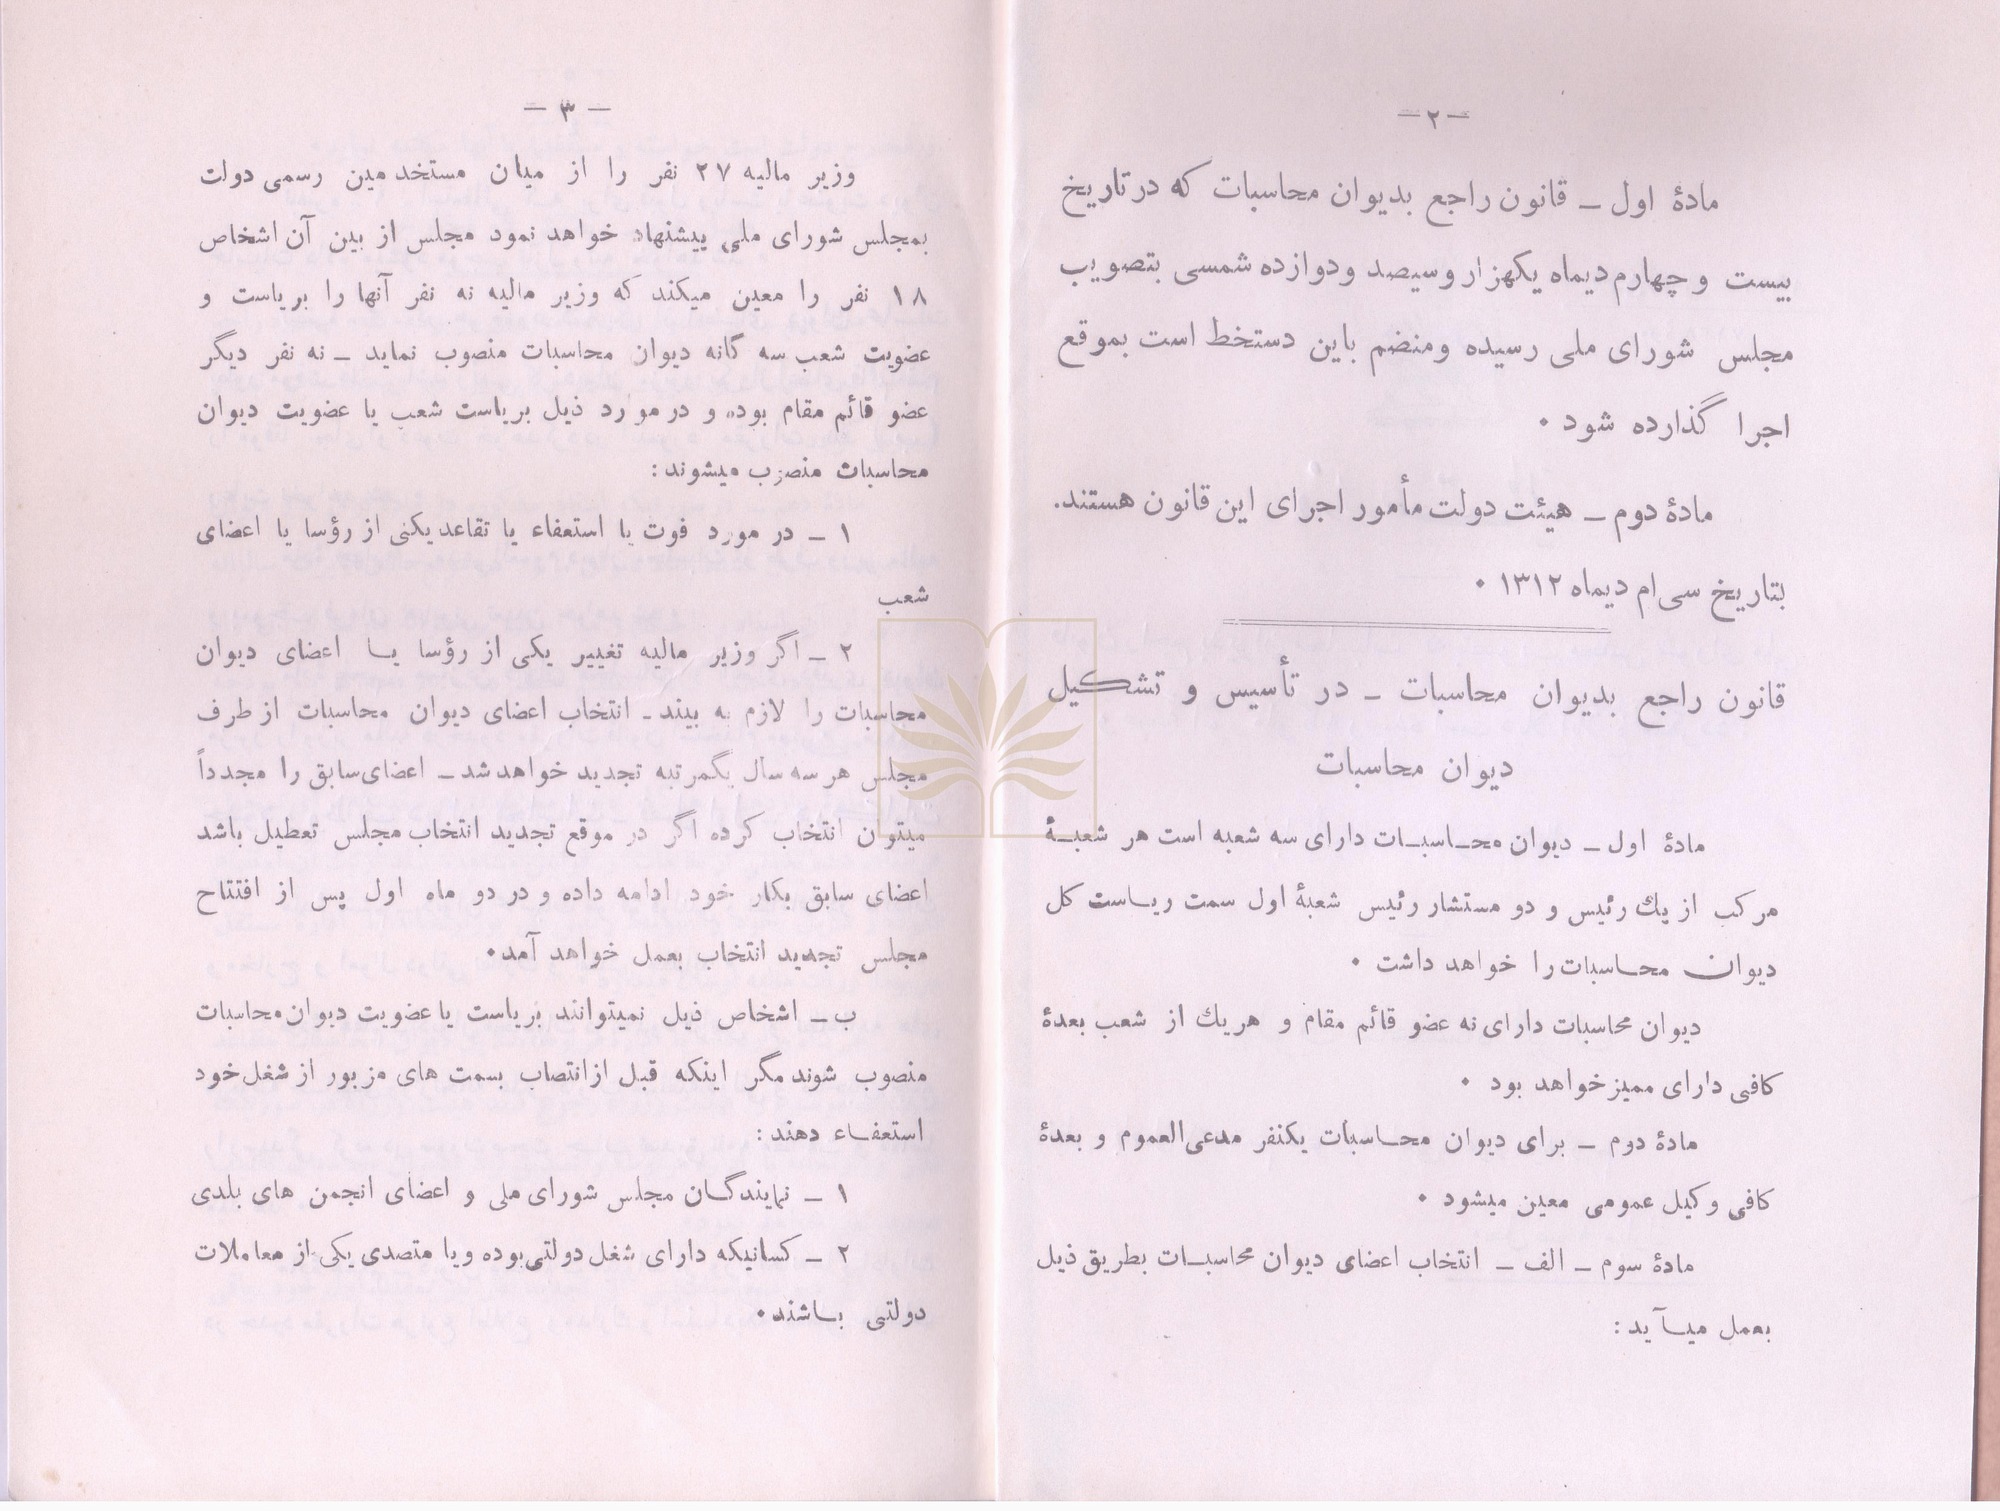 ـ ۲ ـ
مادهٔ اول ـ قانون راجع بدیوان محاسبات که در تاریخ
بیست و چهارم دیماه یکهزار و سیصد و دوازده شمسی بتصویب
مجلس شورای ملی رسیده و منضم باین دستخط است بموقع
اجرا گذارده شود .
مادهٔ دوم ـ هیئت دولت مأمور اجرای این قانون هستند.
بتاریخ سی‌ام دیماه ۱۳۱۲ .
قانون راجع بدیوان محاسبات ـ در تأسیس و تشکیل
دیوان محاسبات
مادهٔ اول ـ دیوان محـاسبـات دارای سه شعبه است هر شعبـهٔ
مرکب از یك رئیس و دو مستشار رئیس شعبهٔ اول سمت ریـاست کل
دیوان محـاسبات را خواهد داشت .
دیوان محاسبات دارای نه عضو قائم مقام و هریك از شعب بعدهٔ
کافی دارای ممیز خواهد بود .
مادهٔ دوم ـ برای دیوان محـاسبات یکنفر مدعی‌العموم و بعدهٔ
کافی وکیل عمومی معین میشود .
مادهٔ سوم ـ الف ـ انتخاب اعضای دیوان محاسبـات بطریق ذیل
بعمل میـآید :
ـ ۳ ـ
وزیر مالیه ۲۷ نفر را از میان مستخدمین رسمی دولت
بمجلس شورای ملی پیشنهاد خواهد نمود مجلس از بین آن اشخاص
۱۸ نفر را معین میکند که وزیر مالیه نه نفر آنها را بریاست و
عضویت شعب سه گانه دیوان محاسبات منصوب نماید ـ نه نفر دیگر
عضو قائم مقام بوده و در موارد ذیل بریاست شعب یا عضویت دیوان
محاسبات منصوب میشوند :
۱ ـ در مورد فوت یا استعفاء یا تقاعد یکی از رؤسا یا اعضای
شعب
۲ ـ اگر وزیر مالیه تغییر یکی از رؤسا یـا اعضای دیوان
محاسبات را لازم به بیند ـ انتخاب اعضای دیوان محاسبات از طرف
مجلس هر سه سال یکمرتبه تجدید خواهد شد ـ اعضای سابق را مجدداً
میتوان انتخاب کرده اگر در موقع تجدید انتخاب مجلس تعطیل باشد
اعضای سابق بکار خود ادامه داده و در دو ماه اول پس از افتتاح
مجلس تجدید انتخاب بعمل خواهد آمد.
ب ـ اشخاص ذیل نمیتوانند بریاست یا عضویت دیوان محاسبات
منصوب شوند مگر اینکه قبل از انتصاب بسمت های مزبور از شغل خود
استعفـاء دهند :
۱ ـ نمایندگـان مجلس شورای ملی و اعضای انجمن های بلدی
۲ ـ کسانیکه دارای شغل دولتی بوده و یا متصدی یکی از معاملات
دولتی بـاشند.